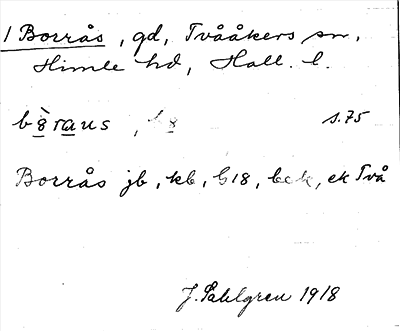 1 Borrås, gd, Tvååkers sn,
Himle hd, Hall. l.
s. 75
Borrås jb, kb, G18, bek, ek Två
J. Sahlgren 1918